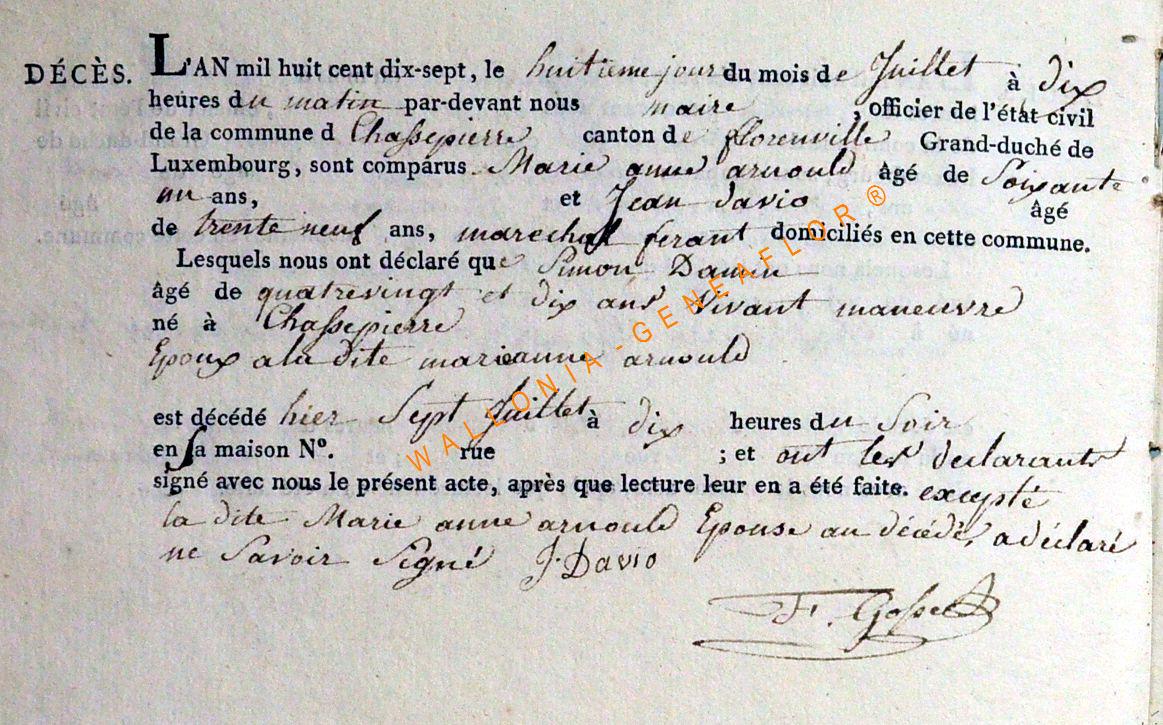 DÉCÈS. L'AN mil huit cent dix-sept, le huitieme jour du mois de Juillet à dix
heures du matin par-devant nous maire, officier de l'état civil
de la commune d Chassepierre canton de florenville Grand-duché de
Luxembourg, sont comparus Marie anne arnould âgé de Soixante
un ans, et Jean davio âgé
de trente neuf ans, marechal ferant domiciliés en cette commune.
Lesquels nous ont déclaré que Simon
âgé de quatrevingt et dix ans vivant maneuvre
né à Chassepierre
Epoux a la dite marieanne arnould
est décédé hier Sept Juillet à dix heures du Soir
en sa maison N°. rue ; et ont les declarants
signé avec nous le présent acte, après que lecture leur en a été faite. excepté
la dite Marie anne arnould Epouse au décédé, a déclaré
ne Savoir Signé J. Davio
F. Gosse
WALLONIA-GENEAFLOR®